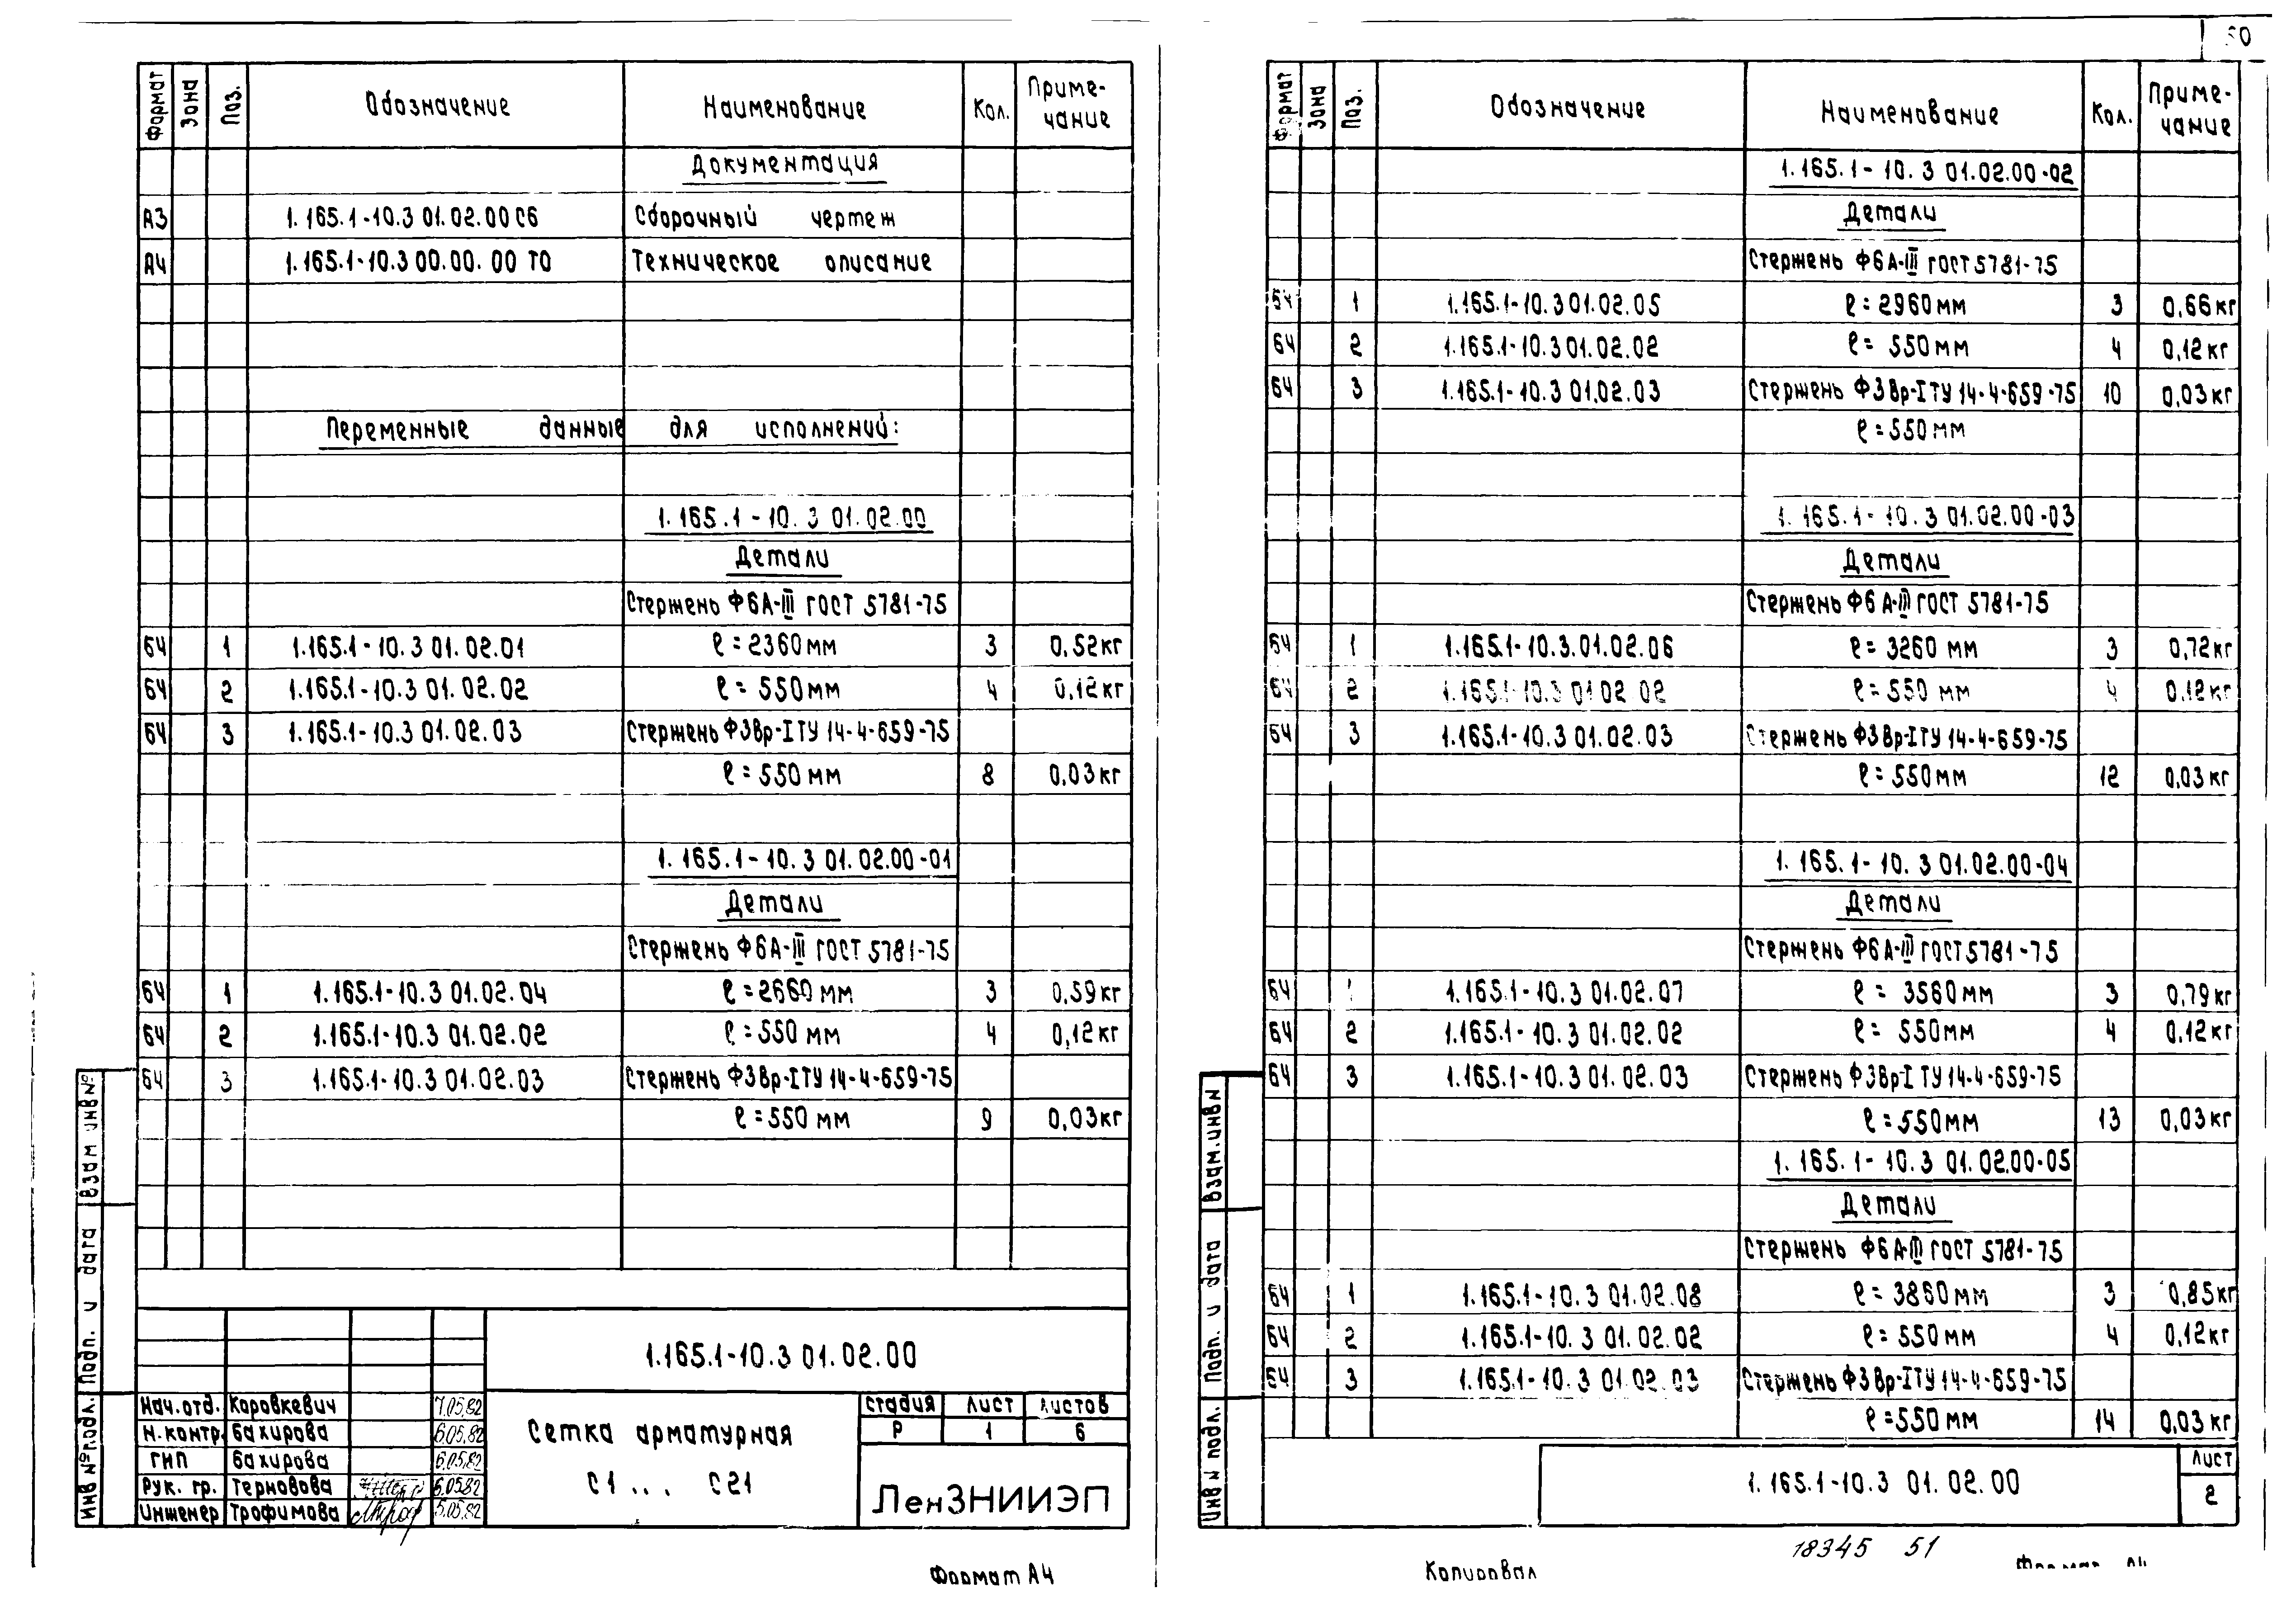 50
Формат Зона Поз. Обозначение Наименование Кол. Приме-
чание
Документация
А3 1.165.1-10.3 01.02.00 СБ Сборочный чертеж
А4 1.165.1-10.3 00.00.00 ТО Техническое описание
Переменные данные для исполнений:
1.165.1-10.3 01.02.00
Детали
Стержень Ф6А-III ГОСТ 5781-75
БЧ 1 1.165.1-10.3 01.02.01 ℓ=2360мм 3 0,52кг
БЧ 2 1.165.1-10.3 01.02.02 ℓ=550мм 4 0,12кг
БЧ 3 1.165.1-10.3 01.02.03 Стержень Ф3Вр-I ТУ 14-4-659-75
ℓ=550мм 8 0,03кг
1.165.1-10.3 01.02.00-01
Детали
Стержень Ф6А-III ГОСТ 5781-75
БЧ 1 1.165.1-10.3 01.02.04 ℓ=2660мм 3 0,59кг
БЧ 2 1.165.1-10.3 01.02.02 ℓ=550мм 4 0,12кг
БЧ 3 1.165.1-10.3 01.02.03 Стержень Ф3Вр-I ТУ 14-4-659-75
ℓ=550мм 9 0,03кг
Взам инв№
Подп. и дата
Инв № подл.
1.165.1-10.3 01.02.00
Нач.отд. Коровкевич 7.05.82
Н.контр. Бахирова 6.05.82
ГИП Бахирова 6.05.82
Рук. гр. Терновова 6.05.82
Инженер Трофимова 5.05.82
Сетка арматурная
С1 ... С21
Стадия Лист Листов
Р 1 6
ЛенЗНИИЭП
Формат А4
Формат Зона Поз. Обозначение Наименование Кол. Приме-
чание
1.165.1-10.3 01.02.00-02
Детали
Стержень Ф6А-III ГОСТ 5781-75
БЧ 1 1.165.1-10.3 01.02.05 ℓ=2960мм 3 0,66кг
БЧ 2 1.165.1-10.3 01.02.02 ℓ=550мм 4 0,12кг
БЧ 3 1.165.1-10.3 01.02.03 Стержень Ф3Вр-I ТУ 14-4-659-75 10 0,03кг
ℓ=550мм
1.165.1-10.3 01.02.00-03
Детали
Стержень Ф6А-III ГОСТ 5781-75
БЧ 1 1.165.1-10.3.01.02.06 ℓ=3260мм 3 0,72кг
БЧ 2 1.165.1-10.3 01.02.02 ℓ=550мм 4 0,12кг
БЧ 3 1.165.1-10.3 01.02.03 Стержень Ф3Вр-I ТУ 14-4-659-75
ℓ=550мм 12 0,03кг
1.165.1-10.3 01.02.00-04
Детали
Стержень Ф6А-III ГОСТ 5781-75
БЧ 1 1.165.1-10.3 01.02.07 ℓ=3560мм 3 0,79кг
БЧ 2 1.165.1-10.3 01.02.02 ℓ=550мм 4 0,12кг
БЧ 3 1.165.1-10.3 01.02.03 Стержень Ф3Вр-I ТУ 14-4-659-75
ℓ=550мм 13 0,03кг
1.165.1-10.3 01.02.00-05
Детали
Стержень Ф6А-III ГОСТ 5781-75
БЧ 1 1.165.1-10.3 01.02.08 ℓ=3860мм 3 0,85кг
БЧ 2 1.165.1-10.3 01.02.02 ℓ=550мм 4 0,12кг
БЧ 3 1.165.1-10.3 01.02.03 Стержень Ф3Вр-I ТУ 14-4-659-75
ℓ=550мм 14 0,03кг
Взам.инв №
Подп. и дата
Инв № подл.
1.165.1-10.3 01.02.00
Лист
2
18345 51
Копировал
Формат А4